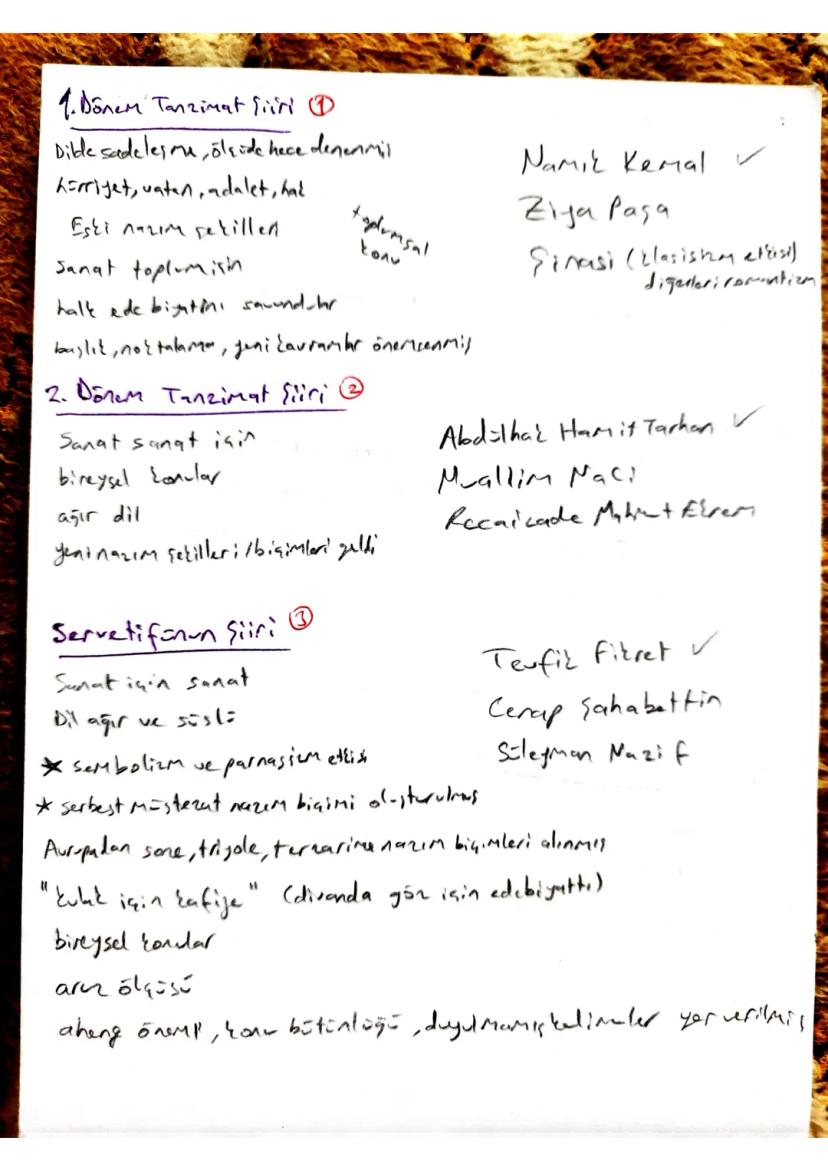 1. Dönem Tanzimat Şiiri ①
Dilde sadeleşme, ölçüde hece denenmiş
hürriyet, vatan, adalet, hak
Eski nazım şekilleri
* toplumsal
konu
sanat toplum için
halk edebiyatını savundular
başlık, noktalama, yeni kavramlar önemsenmiş
Namık Kemal ✓
Ziya Paşa
Şinasi (klasisizm etkisi)
diğerleri romantizm
2. Dönem Tanzimat Şiiri ②
Sanat sanat için
bireysel konular
ağır dil
yeni nazım şekilleri/biçimleri geldi
Abdülhak Hamit Tarhan ✓
Muallim Naci
Recaizade Mahmut Ekrem
Servetifünun Şiiri ③
Sanat için sanat
Dil ağır ve süslü
* sembolizm ve parnasizm etkisi
* serbest müstezat nazım biçimi oluşturulmuş
Avrupadan sone, triyole, terzarima nazım biçimleri alınmış
"kulak için kafiye" (divanda göz için edebiyattı)
bireysel konular
aruz ölçüsü
aheng önemli, konu bütünlüğü, duyulmamış kelimeler yer verilmiş
Tevfik Fikret ✓
Cenap Şahabettin
Süleyman Nazif